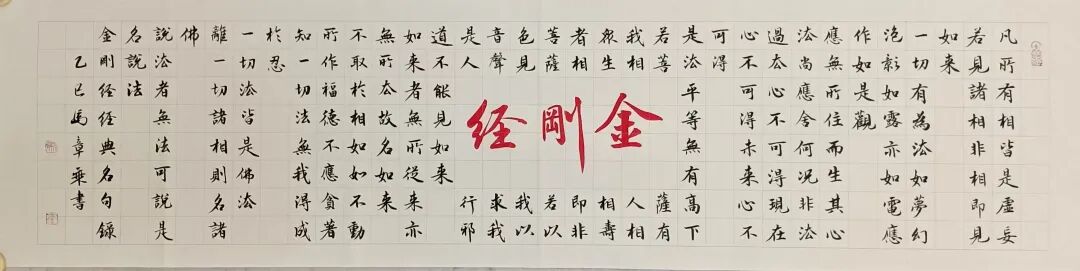 凡所有相皆是虛妄
若見諸相非相即見
如來
一切有為法如夢幻
泡影如露亦如電應
作如是觀
應無所住而生其心
法尚應舍何況非法
過去心不可得現在
心不可得未來心不
可得
是法平等無有高下
若菩薩有
我相人相
眾生相壽
者相即非
菩薩若以
色見我以
音聲求我
是人行邪
道不能見如來
金剛经
如來者無所從來亦
無所去故名如來
不取於相如如不動
所作福德不應貪著
知一切法無我得成
於忍
一切法皆是佛法
離一切諸相則名諸
佛
說法者無法可說是
名說法
金剛經經典名句錄
乙巳馬章乘書